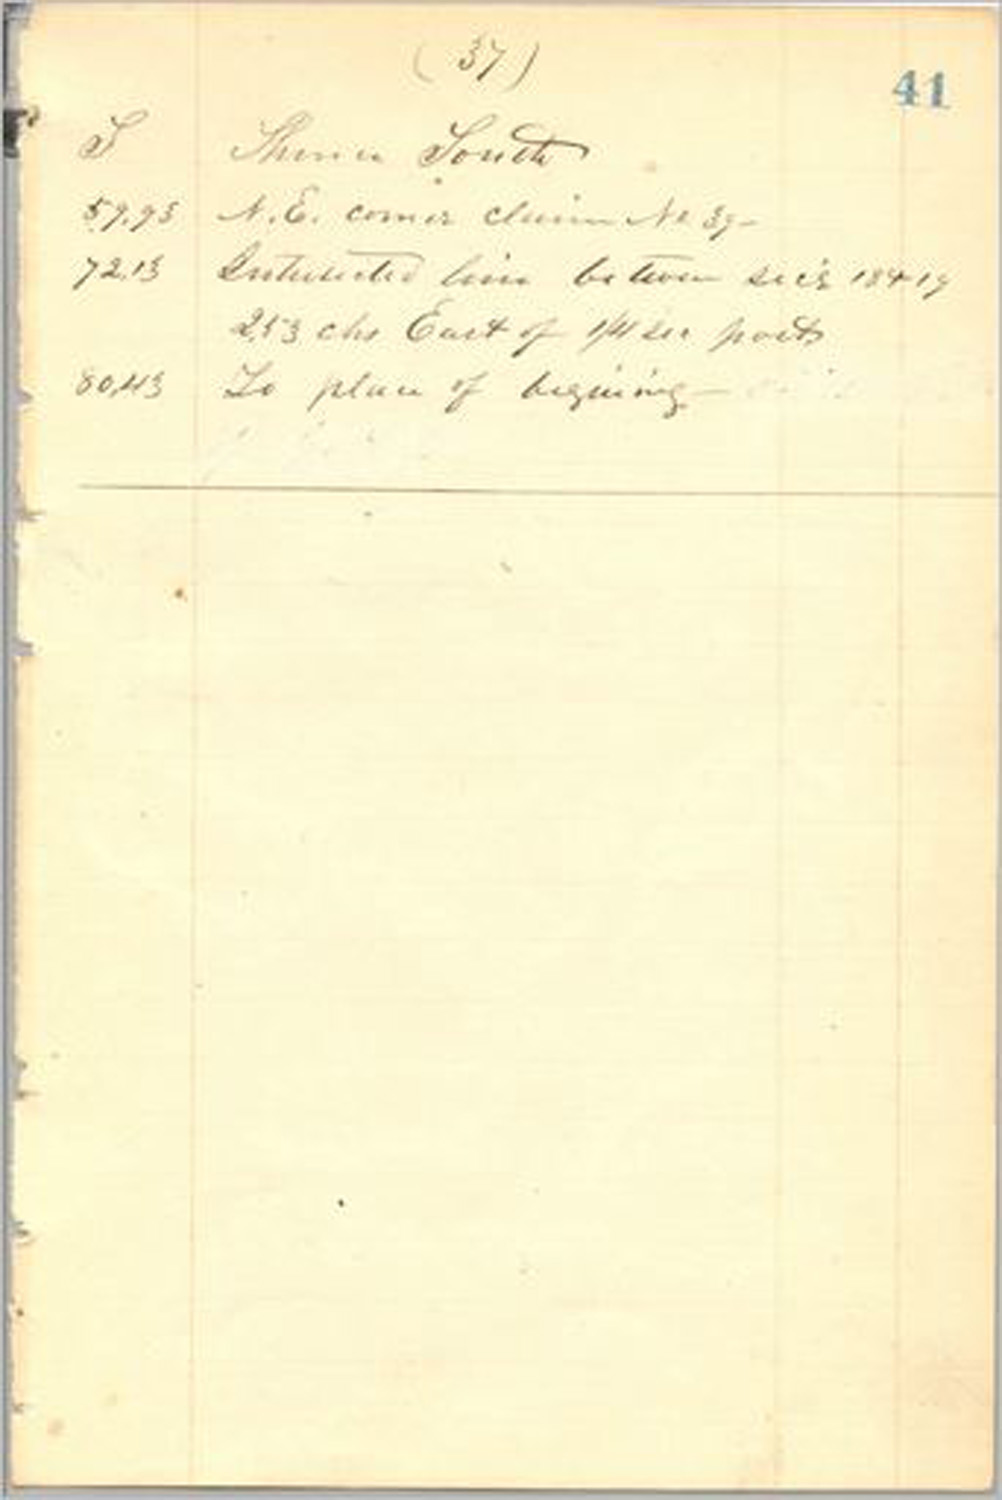 (37)
41
S Thence South
59.93 N.E. corner claim No 39—
72.13 Intersected line between sec's 18 & 19
2.53 chs East of 1/4 sec post
80.43 To place of begining—